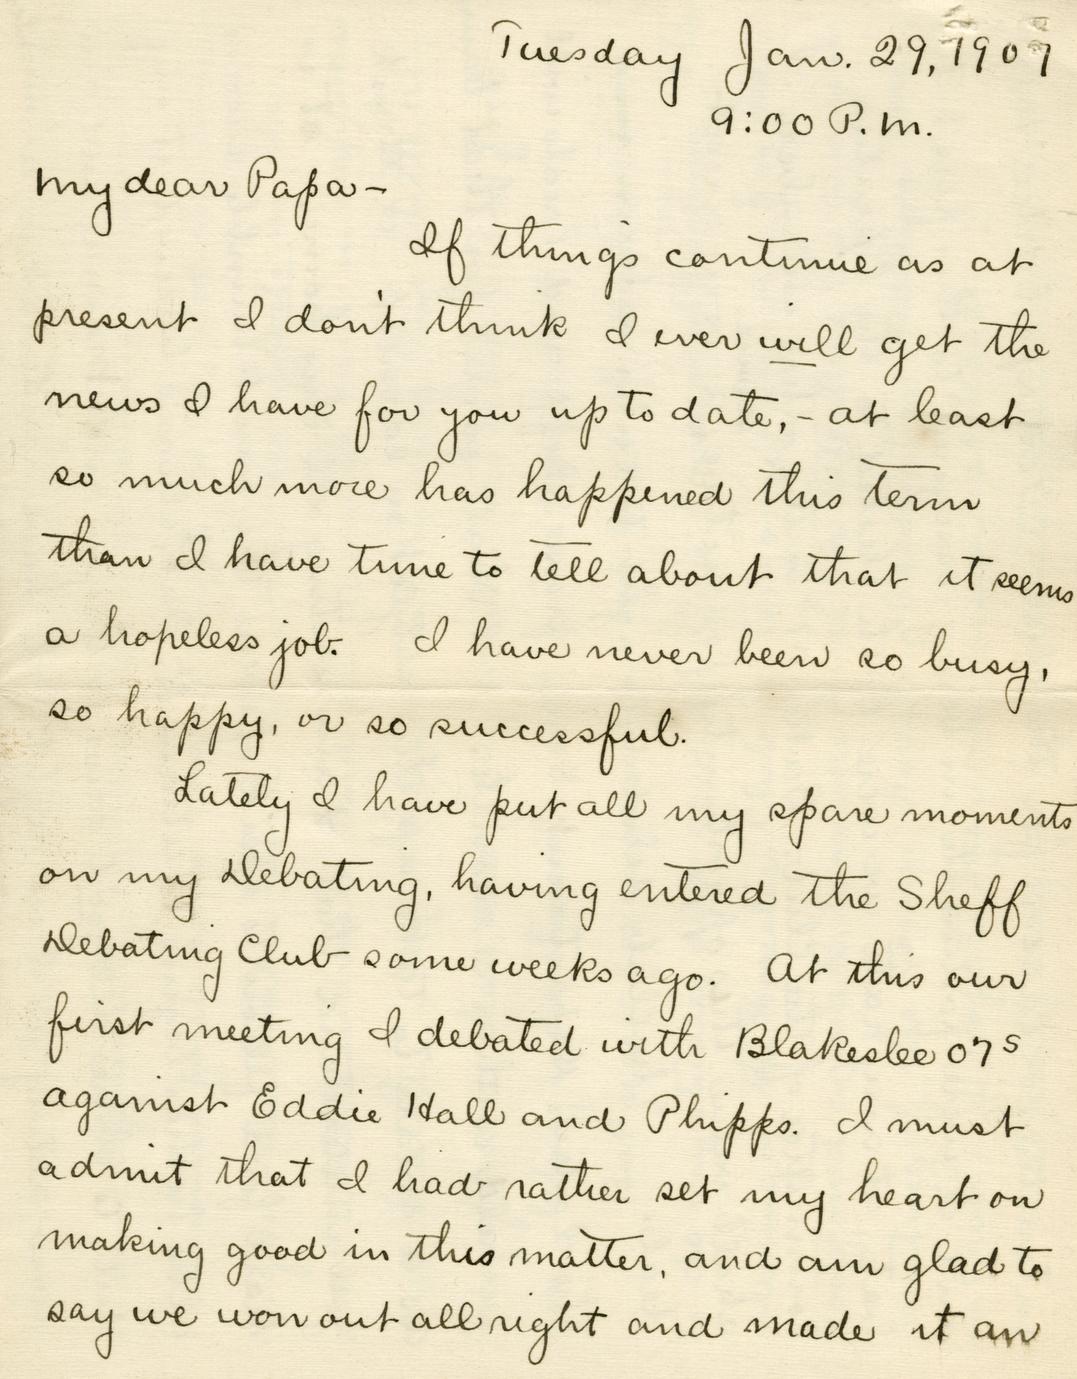 Tuesday Jan. 29, 1907
9:00 P.M.
My dear Papa -
If things continue as at
present I don't think I ever will get the
news I have for you up to date, - at least
so much more has happened this term
than I have time to tell about that it seems
a hopeless job. I have never been so busy,
so happy, or so successful.
Lately I have put all my spare moments
on my Debating, having entered the Sheff
Debating Club some weeks ago. At this our
first meeting I debated with Blakeslee 07 S
against Eddie Hall and Phipps. I must
admit that I had rather set my heart on
making good in this matter, and am glad to
say we won out all right and made it an